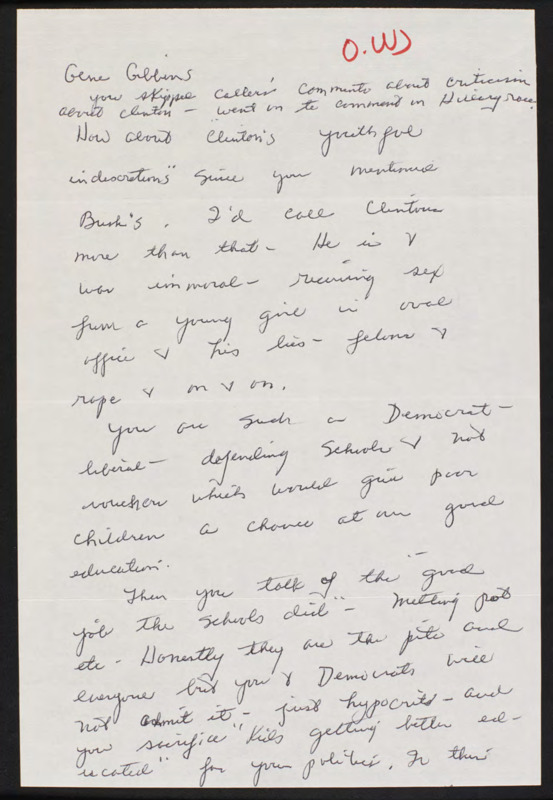 O.W
Gene Gibbins
you skipped caller's comments about criticism
about Clinton - went on to comment on Hillary race.
How about "Clinton's youthful
indiscretions" since you mentioned
Bush's. I'd call Clintons
more than that - He is &
was immoral - receiving sex
from a young girl in oval
office & his lies - felons &
rape & on & on.
You are such a Democrat -
liberal - defending Schools & not
vouchers which would give poor
children a chance at a good
education.
Then you talk of the "good
job the schools did" - melting pot
etc - Honestly they are the pits and
everyone but you & Democrats will
not admit it - just hypocrits - and
you sacrifice "Kids getting better ed-
ucated" for your politics. Is this